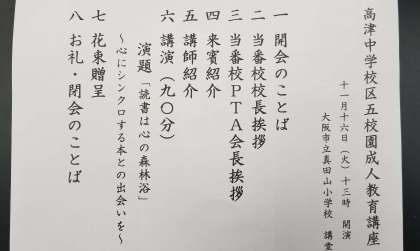 高津中学校区五校園成人教育講座
十一月十六日（火）十三時　開演
大阪市立真田山小学校　講堂
一　開会のことば
二　当番校校長挨拶
三　当番校ＰＴＡ会長挨拶
四　来賓紹介
五　講師紹介
六　講演（九〇分）
演題「読書は心の森林浴」
～心にシンクロする本との出会いを～
七　花束贈呈
八　お礼・閉会のことば